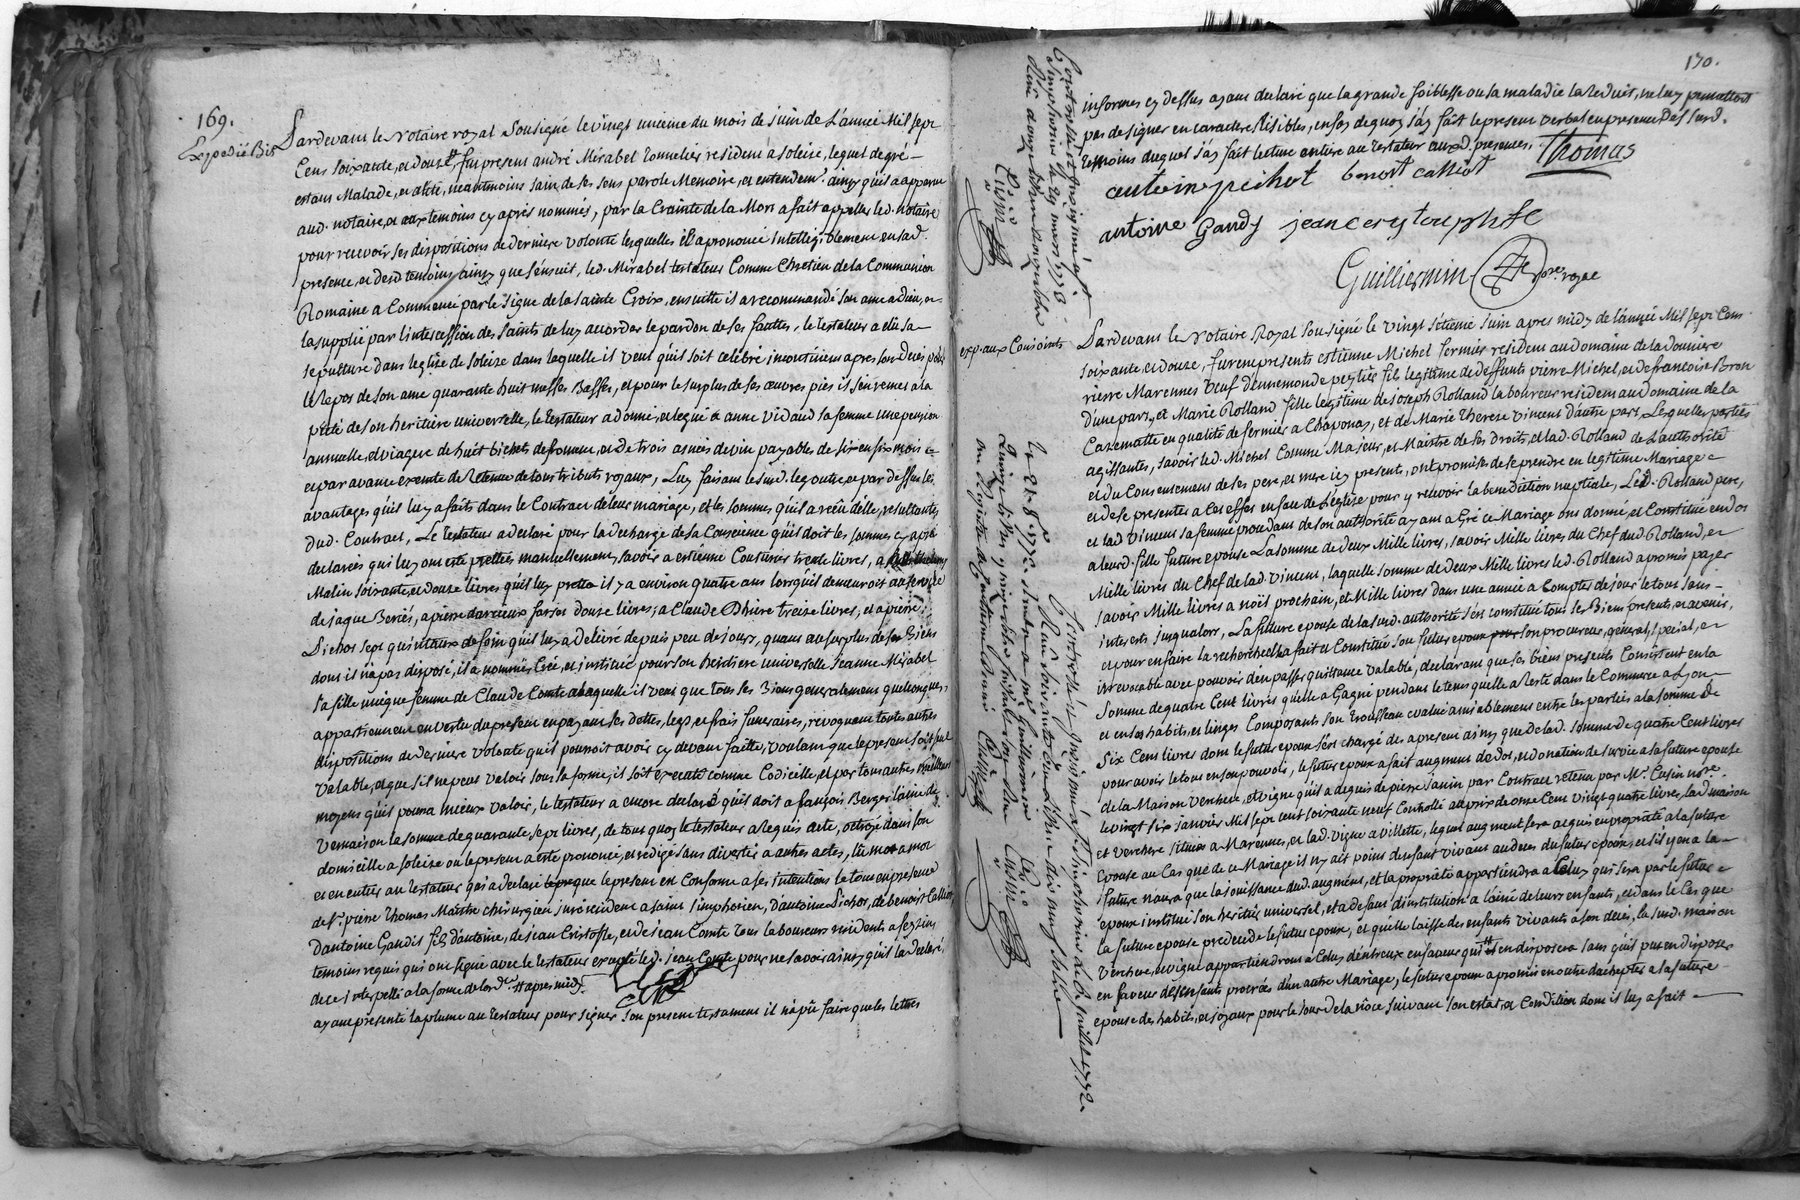 169.
Expedié Bis
Pardevant le Notaire royal Sousigné le vingt unieme du mois de Juin de L'année Mil sept
Cens soixante, et douze, fut present andré Mirabel Tonnelier resident a soleize, lequel de gré
estant Malade, et alité, neantmoins sain de ses sens parole Memoire, et entendemt. ainsy qu'il a apparu
aud. notaire, et aux temoins cy après nommés, par la Crainte de la Mort a fait appeller led. notaire
pour recevoir ses dispositions de derniere volonté lesquelles il a prononcé Intelligiblement en sad.
presence, et desd. temoins ainsy que s'ensuit, led. Mirabel testateur Comme Chretien de la Communion
Romaine a Commencé par le signe de la sainte Croix, ensuitte il a recommandé son ame a dieu, et
la supplié par l'intercession des saints de luy accorder le pardon de ses fauttes, le testateur a élu sa
sepulture dans leglise de soleize dans laquelle il veut qu'il soit célébré incontinent apres son decès pour
le Repos de son ame quarante huit messes Basses, et pour le surplus de ses œuvres pies il s'en remet a la
pieté de son heritiere universelle, le testateur a donné, et legué a anne Vidaud sa femme une pension
annuelle, et viagere de huit bichets de froment, et de trois asnées de vin payable de six en six mois et
et par avance exempte de Retenue de tous tributs royaux, Luy faisant le susd. legs outre et par dessus les
avantages qu'il luy a faits dans le Contract de leur mariage, et les sommes qu'il a reçu d'elle, resultantes
dud. Contract, Le testateur a declaré pour la decharge de sa Conscience qu'il doit les sommes cy après
declarées qui luy ont esté prettés manuellement, savoir a estienne Couturier trente livres, a
Matin soixante, et douze livres qu'il luy pretta il y a environ quatre ans lorsqu'il demeuroit au service
de jaque Beriès, a pierre darcieux farjot douze livres, a Claude Drivre treize livres, et a pierre
Pichot sept quintaux de foin qu'il luy a delivré depuis peu de jours, quant au surplus de ses Biens
dont il n'a pas disposé, il a nommé, Créé, et institué pour son heritiere universelle Jeanne Mirabel
sa fille unique femme de Claude Comte a laquelle il veut que tous ses Biens generalement quelconques
appartiennent en vertu du present en payant ses dettes, legs, et frais funeraires, revoquant toutes autres
dispositions de derniere volonté qu'il pourroit avoir cy devant faitte, voulant que le present soit seul
valable, et que s'il ne peut valoir sous sa forme, il soit executé comme Codicille, et par tous autres meilleurs
moyens qu'il pourra mieux valoir, le testateur a encore declaré qu'il doit a françois Berger l'ainé de
Vernaison la somme de quarante sept livres, de tout quoy le testateur a Requis acte, octroyé dans son
domicille a soleize ou le present a esté prononcé, et redigé sans divertir a autres actes, lu mot a mot
et en entier au testateur qui a declaré que le present est Conforme a ses intentions le tout en presence
de sr. pierre Thomas Maitre chirurgien juré resident a saint simphorien, d'antoine Pichot, de benoist Calliot,
d'antoine Gandis fils d'antoine, de jean Cristofle, et de jean Comte tous laboureurs residents a seizins
temoins requis qui ont signé avec le testateur excepté led. jean Comte pour ne savoir ainsy qu'il l'a declaré,
de ce interpellé a la forme de lordce. et apres midy.
ayant presenté la plume au testateur pour signer son present testament il n'a pû faire que les lettres
170.
informes cy dessus ayant declaré que la grande foiblesse ou sa maladie la reduit, ne luy permettoit
pas de signer en caractere lisibles, en foy de quoy j'ay fait le present verbal en presence des susd.
temoins duquel j'ay fait lecture entiere au testateur auxd. presences. Thomas
antoine pichot benoit calliot
antoine Gandy jean cristouphle
Guilliermin nore. royal
Controllé et insinué a st.
Simphorien le 29 mars 1773
Reçu
Cusin
exp. aux Conjoints
Pardevant le Notaire Royal Sousigné le vingt setieme Juin apres midy de l'année Mil sept Cens
soixante, et douze, furent presents estienne Michel fermier resident au Domaine de la Donniere
riere Marennes fils legitime de deffunts pierre Michel, et de francoise Bron
d'une part, et Marie Rolland fille legitime de joseph Rolland laboureur resident au domaine de la
Cazematte en qualité de fermier a Chaponay, et de Marie Therese Vincent d'autre part, Lesquelles parties
agissantes, savoir led. Michel Comme Majeur, et Maistre de ses Droits, et lad. Rolland de L'authorité
et du Consentement de ses pere, et mere icy presents, ont promis de se prendre en legitime Mariage et
et de se presenter a cet effet en face de L'eglise pour y recevoir la benediction nuptiale, Led. Rolland pere,
et lad. Vincent sa femme procedant de son authorité ayant agréé ce Mariage ont donné, et Constitué en dot
a leurd. fille future epouse La somme de deux Mille livres, savoir Mille livres du Chef dud. Rolland, et
Mille livres du Chef de lad. Vincent, laquelle somme de deux Mille livres led. Rolland a promis payer
savoir Mille livres a noël prochain, et Mille livres dans une année a Compter de ce jour le tout sans
interets jusqu'alors, La future epouse de la susd. authorité s'est constitué tous ses Biens presents, et avenir,
et pour en faire la recherche elle a fait et Constitué son futur epoux son procureur, général, special, et
irrevocable avec pouvoir d'en passer quittance valable, declarant que ses biens presents Consistent en la
somme de quatre Cent livres qu'elle a Gagné pendant le tems qu'elle a Resté dans le Commerce a Lyon
et en ses habits, et linges Composants son trousseau evalué amiablement entre les parties a la somme de
six Cens livres dont le futur epoux s'est chargé des apresent ainsy que de lad. somme de quatre Cent livres
pour avoir le tout en son pouvoir, le futur epoux a fait augment de dot, et donation de survie a la future epouse
de la Maison verchere, et vigne qu'il a acquis de pierre Janin par Contract retenu par Me. Cusin nore.
le vingt six janvier Mil sept cent soixante neuf Controllé au prix de onze Cent vingt quatre livres, lad. maison
et verchere situées a Marennes, et lad. vigne a Villette, lequel augment sera acquis en propriété a la future
epouse au Cas que de ce Mariage il n'y ait point d'enfant vivant au decès du futur epoux, et s'il y en a la
future n'aura que la jouissance dud. augment, et la propriété appartiendra a Celuy qui sera par le futur
epoux institué son heritier universel, et a defaut d'institution a l'ainé de leurs enfants, et dans le Cas que
la future epouse predecede le futur epoux, et qu'elle laisse des enfants vivants a son decès, la susd. maison
verchere, et vigne appartiendront a Celuy d'entreux en faveur qui il en disposera sans qu'il puisse en disposer
en faveur des enfants procréés d'un autre Mariage, le futur epoux a promis en outre d'achepter a la future
épouse des habits, et joyaux pour le jour de la nôce suivant son estat, et Condition dont il luy a fait